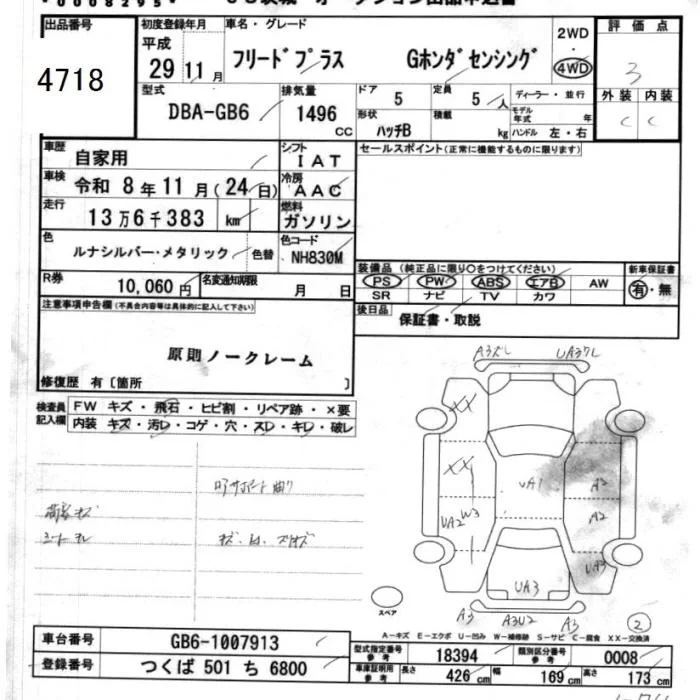 *0008295*
出品番号
4718
初度登録年月
平成
29 11月
車名・グレード
フリードプラス Gホンダセンシング
2WD
・
4WD
評価点
3
外装 内装
C C
型式
DBA-GB6
排気量
1496
CC
ドア
5
定員
5 人
ディーラー・並行
形状
ハッチB
積載
kg
モデル年式 年
ハンドル 左・右
車歴
自家用
シフト
IAT
車検
令和 8年11月(24日)
冷房
AAC
走行
13万6千383 km
燃料
ガソリン
色
ルナシルバー・メタリック
色替
色コード
NH830M
R券
10,060円
名変通知期限
月 日
セールスポイント(正常に機能するものに限ります)
装備品(純正品に限り○をつけてください)
PS PW ABS エアB AW
SR ナビ TV カワ
新車保証書
有・無
後日品
保証書・取説
注意事項申告欄(不具合内容等は具体的に記入して下さい)
原則ノークレーム
修復歴 有〔箇所 〕
検査員記入欄
FW キズ・飛石・ヒビ割・リペア跡・×要
内装 キズ・汚レ・コゲ・穴・スレ・キレ・破レ
A3 UA3
XX
XX
UA1
A2
UA2 W3
A2
UA3
UA3
A3 A3U2 A3
スペア
2
A-キズ E-エクボ U-凹み W-補修跡 S-サビ C-腐食 XX-交換済
車台番号
GB6-1007913
登録番号
つくば 501 ち 6800
型式指定番号
参考
18394
類別区分番号
参考
0008
車庫証明用
参考
長さ 426 cm 幅 169 cm 高さ 173 cm